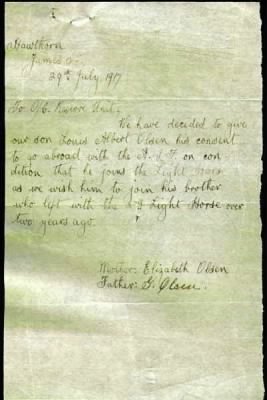 Hawthorn
James
29th July, 1917
To O/C. Unit.
We have decided to give
our son Louis Albert Olsen his consent
to go abroad with the A.I.F. on con
dition that he joins the Light Horse
as we wish him to join his brother
who left with the Light Horse over
two years ago.
Mother: Elizabeth Olsen
Father: G. Olsen.